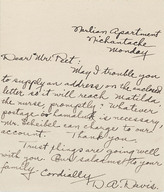 Martian Apartment
Nichantache
Monday
Dear Mr. Peet:
May I trouble you
to supply an address on the enclosed
letter so it will reach Matilda,
the nurse, promptly? Whatever
postage is necessary
Mr. can charge to our
account. Thank you.
Trust things are going well
with you. Our salaams to your
family Cordially
D. A. Davis